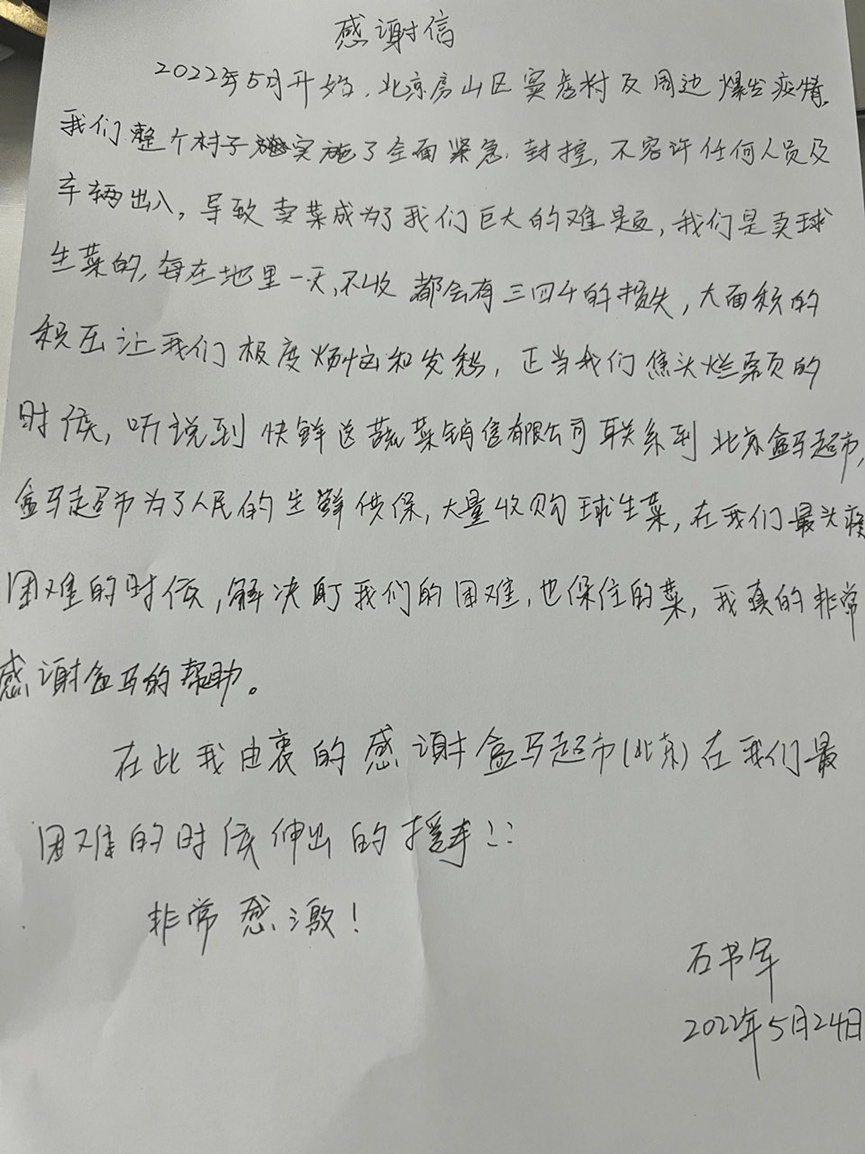 感谢信
2022年5月开始，北京房山区窦店村及周边爆发疫情，
我们整个村子实施了全面紧急封控，不容许任何人员及
车辆出入，导致卖菜成为了我们巨大的难题，我们是卖球
生菜的，每在地里一天，不收都会有三四千的损失，大面积的
积压让我们极度烦恼和发愁，正当我们焦头烂额的
时候，听说到快鲜送蔬菜销售有限公司联系到北京盒马超市，
盒马超市为了人民的生鲜供保，大量收购球生菜，在我们最头疼
困难的时候，解决的我们的困难，也保住的菜，我真的非常
感谢盒马的帮助。
在此我由衷的感谢盒马超市(北京)在我们最
困难的时候伸出的援手!!
非常感激！
石书军
2022年5月24日